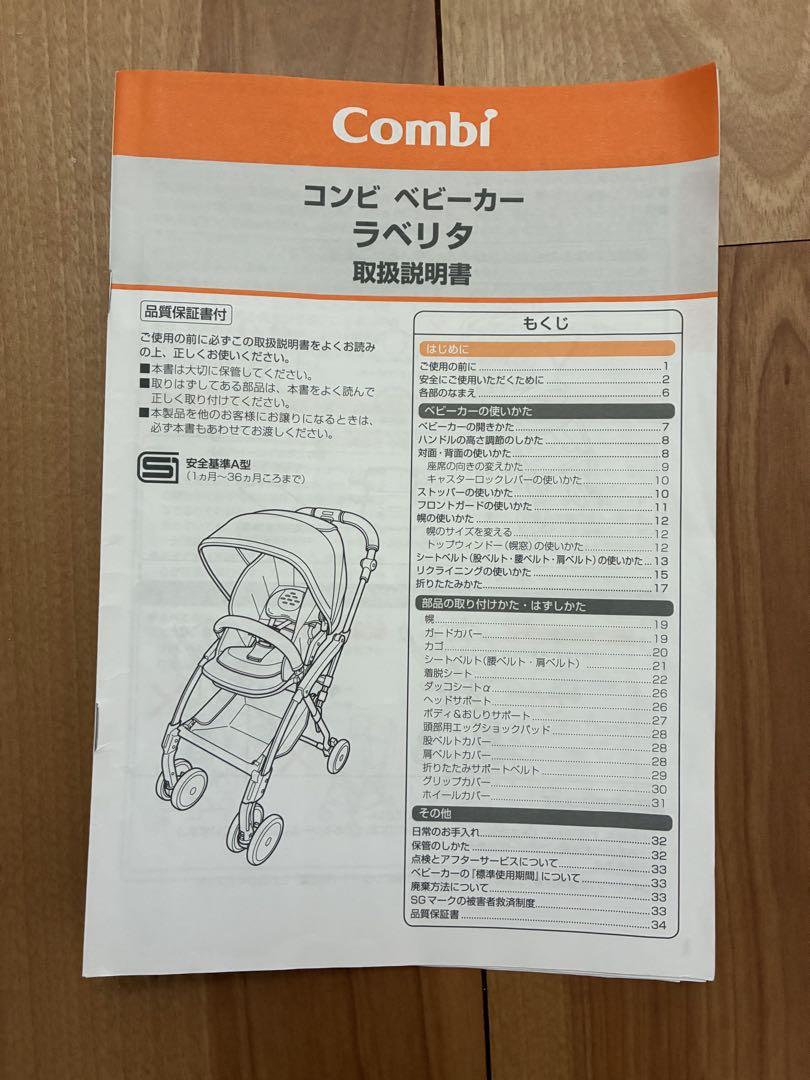 Combi
コンビ ベビーカー
ラベリタ
取扱説明書
品質保証書付
ご使用の前に必ずこの取扱説明書をよくお読み
の上、正しくお使いください。
■本書は大切に保管してください。
■取りはずしてある部品は、本書をよく読んで
正しく取り付けてください。
■本製品を他のお客様にお譲りになるときは、
必ず本書もあわせてお渡しください。
安全基準A型
(1ヵ月〜36ヵ月ころまで)
もくじ
はじめに
ご使用の前に 1
安全にご使用いただくために 2
各部のなまえ 6
ベビーカーの使いかた
ベビーカーの開きかた 7
ハンドルの高さ調節のしかた 8
対面・背面の使いかた 8
座席の向きの変えかた 9
キャスターロックレバーの使いかた 10
ストッパーの使いかた 10
フロントガードの使いかた 11
幌の使いかた 12
幌のサイズを変える 12
トップウィンドー(幌窓)の使いかた 12
シートベルト(股ベルト・腰ベルト・肩ベルト)の使いかた 13
リクライニングの使いかた 15
折りたたみかた 17
部品の取り付けかた・はずしかた
幌 19
ガードカバー 19
カゴ 20
シートベルト(腰ベルト・肩ベルト) 21
着脱シート 22
ダッコシートα 26
ヘッドサポート 26
ボディ&おしりサポート 27
頭部用エッグショックパッド 28
股ベルトカバー 28
肩ベルトカバー 28
折りたたみサポートベルト 29
グリップカバー 30
ホイールカバー 31
その他
日常のお手入れ 32
保管のしかた 32
点検とアフターサービスについて 33
ベビーカーの「標準使用期間」について 33
廃棄方法について 33
SGマークの被害者救済制度 33
品質保証書 34